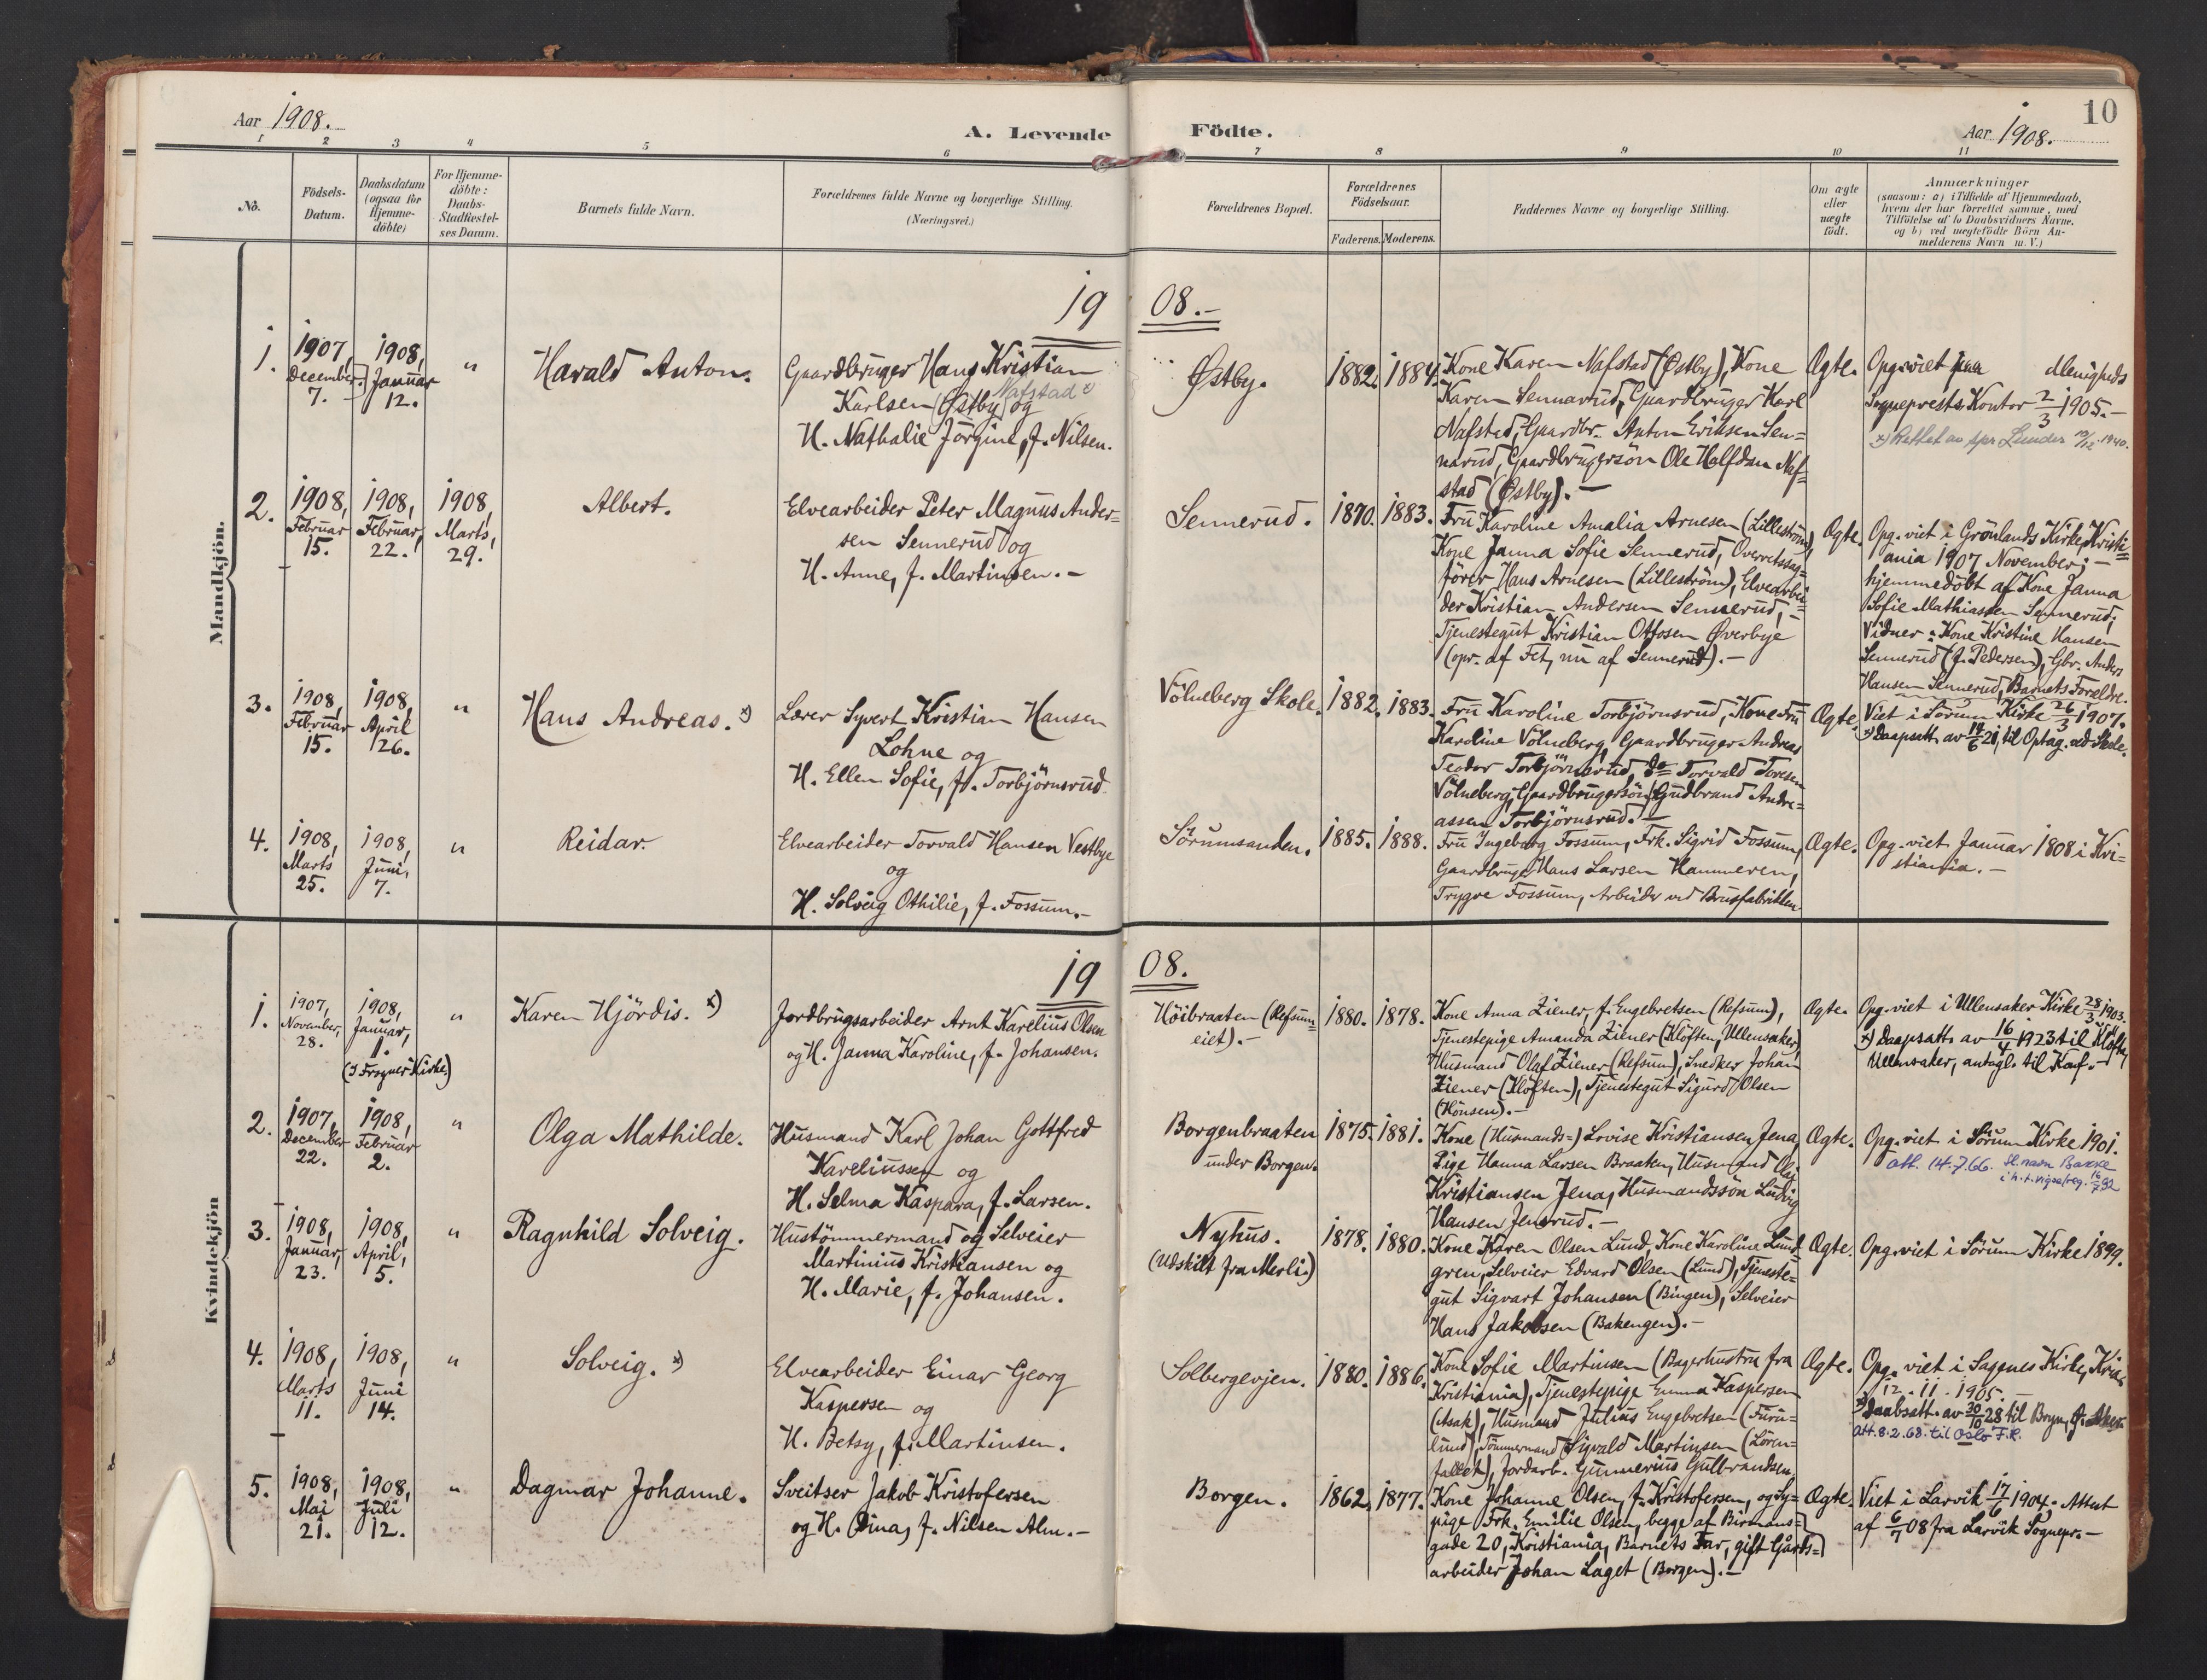 10
Aar 1908.
A. Levende Födte.
Aar 1908.
1 2 3 4 5 6 7 8 9 10 11
No.
Födsels-
Datum.
Daabsdatum
(ogsaa for
Hjemme-
döbte)
For Hjemme-
döbte:
Daabs-
Stadfæstel-
ses Datum.
Barnets fulde Navn.
Forældrenes fulde Navne og borgerlige Stilling.
(Næringsvei.)
Forældrenes Bopæl.
Forældrenes
Födselsaar.
Faderens. Moderens.
Faddernes Navne og borgerlige Stilling.
Om ægte
eller
uægte
födt.
Anmærkninger
(saasom: a) i Tilfælde af Hjemmedaab,
hvem der har forrettet samme, med
Tilföielse af to Daabsvidners Navne,
og b) ved uægtefödte Börn An-
melderens Navn m. V.)
Mandkjön.
1908.-
1.
1907,
December
7.
1908,
Januar
12.
"
Harald Anton.
Gaardbruger Hans Kristian
Nafstad x)
Karlsen (Østby) og
H. Nathalie Jörgine, f. Nilsen.
Østby.
1882. 1884.
Kone Karen Nafstad (Østby), Kone
Karen Sennerud, Gaardbruger Karl
Nafstad, Gaardbr. Anton Eriksen Sen=
nerud, Gaardbrugersön Ole Halfdan Naf=
stad (Østby).-
Ægte.
Opg. viet paa Menigheds
Sogneprests Kontor 2/3 1905.-
x) Rettet av spr. Lunder 10/12 1940.
2.
1908,
Februar
15.
1908,
Februar,
22.
1908,
Marts,
29.
Albert.
Elvearbeider Peter Magnus Ander=
sen Sennerud og
H. Anne, f. Martinsen.-
Sennerud.
1870. 1883.
Fru Karoline Amalia Arnesen (Lilleström)
Kone Janna Sofie Sennerud, Overretssag=
förer Hans Arnesen (Lilleström), Elvearbei=
der Kristian Andersen Sennerud,-
Tjenestegut Kristian Ottosen Øverbye
(opr. af Fet, nu af Sennerud).-
Ægte.
Opg. viet i Grönlands Kirke, Kristi=
ania 1907 November;-
hjemmedöbt af Kone Janna
Sofie Mathiassen Sennerud;
Vidner: Kone Kristine Hansen
Sennerud (f. Pedersen), Gbr. Anders
Hansen Sennerud, Barnets Forældre.
3.
1908,
Februar
15.
1908,
April
26.
"
Hans Andreas. x)
Lærer Syvert Kristian Hansen
Lohne og
H. Ellen Sofie, f. Torbjörnsrud
Völneberg Skole.
1882. 1883.
Fru Karoline Torbjörnsrud, Kone Fru
Karoline Völneberg, Gaardbruger Andreas
Teodor Torbjörnsrud, Do Torvald Toresen
Völneberg, Gaardbrugersön Gudbrand Andre=
assen Torbjörnsrud.-
Ægte.
Viet i Sörum Kirke 26/3 1907.
x) Daapsatt. av 14/6 21, til Optag. ad Skole.
4.
1908,
Marts
25.
1908,
Juni,
7.
"
Reidar
Elvearbeider Torvald Hansen Vestbye
og
H. Solveig Othilie, f. Fossum.-
Sörumsanden.
1885. 1888.
Fru Ingeborg Fossum, Frk. Sigrid Fossum,
Gaardbruger Hans Larsen Hammeren,
Trygve Fossum, Arbeider ved Brusfabrikken
Ægte.
Opg. viet Januar 1808 i Kri=
stiania.-
Kvindekjön
1908.
1.
1907,
November,
28.
1908,
Januar,
1.
(I Frogner Kirke.)
"
Karen Hjördis. x)
Jordbrugsarbeider Arnt Karelius Olsen
og H. Janna Karoline, f. Johansen.
Höibraaten (Refsum=
eiet).-
1880. 1878.
Kone Anna Ziener, f. Engebretsen (Refsum),
Tjenestepige Amanda Ziener (Klöften, Ullensaker)
Husmand Olaf Ziener (Refsum), Snedker Johan
Ziener (Klöften), Tjenestegut Sigurd Olsen
(Hönsen).-
Ægte.
Opg. viet i Ullensaker Kirke 28/3 1903.
x) Daapsatt. av 16/4 1923 til Klöfta,
Ullensaker, antagl. til Konf.-
2.
1907,
December
22.
1908,
Februar
2.
"
Olga Mathilde.
Husmand Karl Johan Gottfred
Kareliussen og
H. Selma Kaspara, f. Larsen.
Borgenbraaten
under Borgen.
1875. 1881.
Kone (Husmands=) Lovise Kristiansen Jena,
Pige Hanna Larsen Braaten, Husmand Olaf
Kristiansen Jena, Husmandssön Ludvig
Hansen Jensrud.-
Ægte.
Opg. viet i Sörum Kirke 1901.
att. 14.7.66. Sl.navn Bakke
i h.t. vigselreg. 16/7 92
3.
1908,
Januar,
23.
1908,
April,
5.
"
Ragnhild Solveig.
Hustömmermand og Selveier
Martinius Kristiansen og
H. Marie, f. Johansen.
Nyhus.
(Udskilt fra Merli.)
1878. 1880.
Kone Karen Olsen Lund, Kone Karoline Lund=
gren, Selveier Edvard Olsen (Lund), Tjeneste=
gut Sigvart Johansen (Bingen), Selveier
Hans Jakobsen (Bakengen).-
Ægte.
Opg. viet i Sörum Kirke 1899.
4.
1908,
Marts
11.
1908,
Juni
14.
"
Solveig. x)
Elvearbeider Einar Georg
Kaspersen og
H. Betsy, f. Martinsen.
Solbergevjen.
1880. 1886.
Kone Sofie Martinsen (Bagerhustru fra
Kristiania), Tjenestepige Emma Kaspersen
(Asak), Husmand Julius Engebretsen (Furu=
lund), Tömmermand Sigvald Martinsen (Lören=
fallet), Jordarb. Gunnerius Gulbrandsen
Ægte.
Opg. viet i Sagenes Kirke, Kria.
12.-11.-1905.
x) Daabsatt. av 30/10 28 til Bryn, Ø. Aker
Att. 8.2.68. til Oslo F.R.
5.
1908,
Mai
21.
1908,
Juli
12.
"
Dagmar Johanne.
Sveitser Jakob Kristofersen
og H. Dina, f. Nilsen Alm.-
Borgen.
1862. 1877.
Kone Johanne Olsen, f. Kristofersen, og Sy=
pige Frk. Emilie Olsen, begge af Birmans=
gade 20, Kristiania, Barnets Far, gift Gårds=
arbeider Johan Laget (Borgen).-
Ægte.
Viet i Larvik 17/6 1904. Attest
af 6/7 08 fra Larvik Sognepr.-